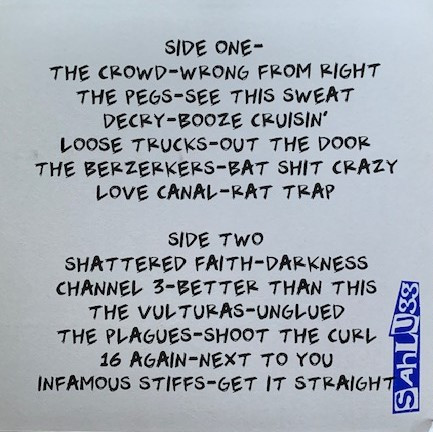 SIDE ONE-
THE CROWD-WRONG FROM RIGHT
THE PEGS-SEE THIS SWEAT
DECRY-BOOZE CRUISIN'
LOOSE TRUCKS-OUT THE DOOR
THE BERZERKERS-BAT SHIT CRAZY
LOVE CANAL-RAT TRAP
SIDE TWO
SHATTERED FAITH-DARKNESS
CHANNEL 3-BETTER THAN THIS
THE VULTURAS-UNGLUED
THE PLAGUES-SHOOT THE CURL
16 AGAIN-NEXT TO YOU
INFAMOUS STIFFS-GET IT STRAIGHT